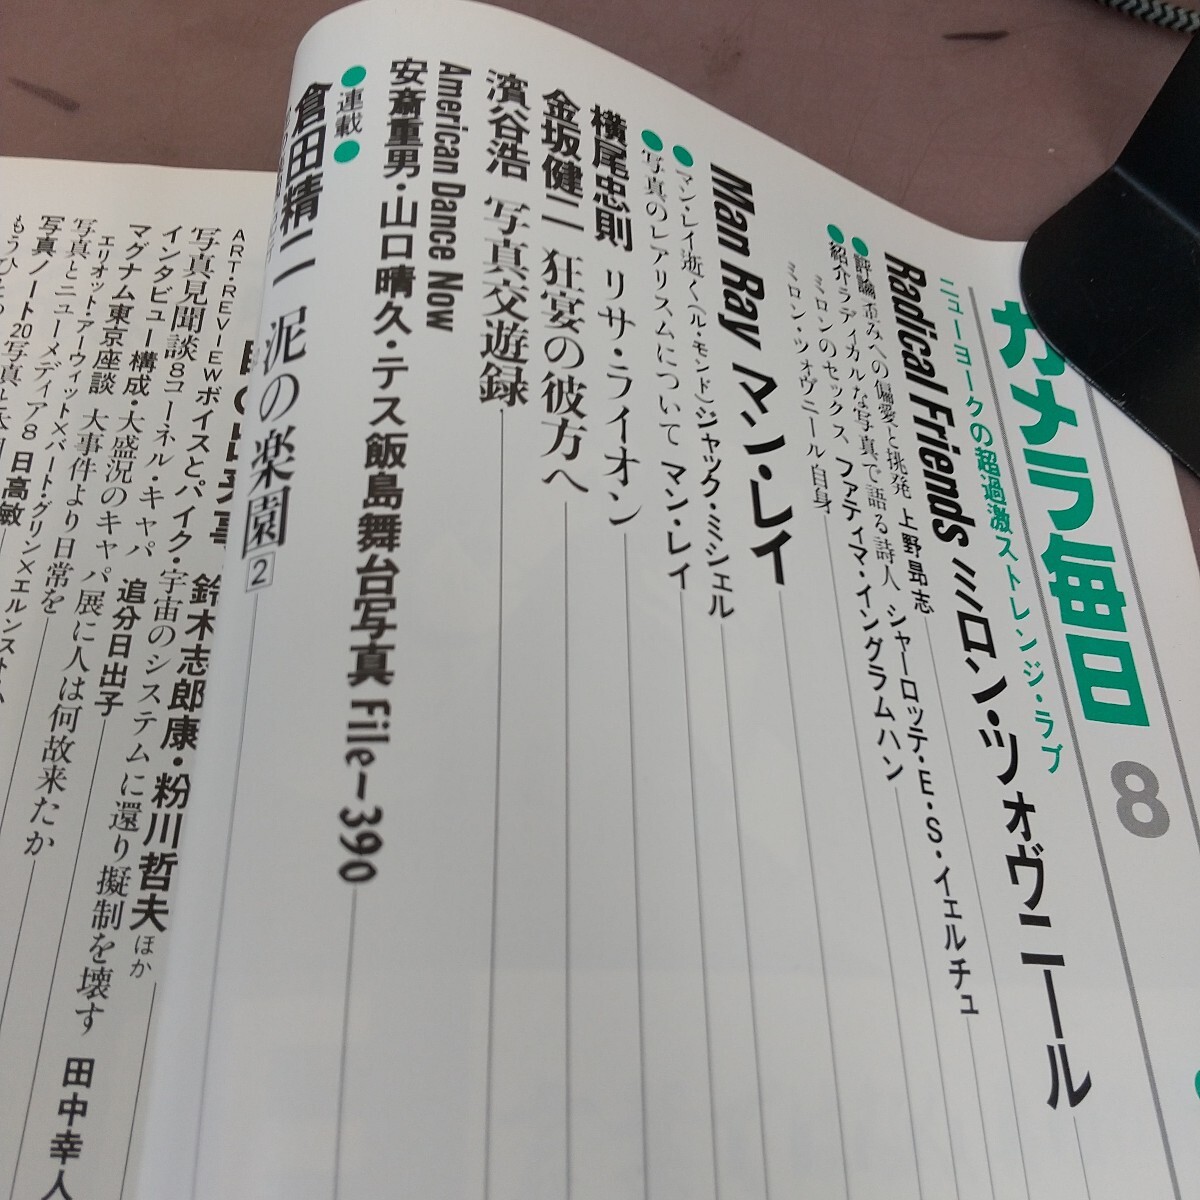 カメラ毎日 8
ニューヨークの超過激ストレンジ・ラブ
Radical Friends ミロン・ツォヴニール
評論 への偏愛と挑発 上野昻志
紹介 ラディカルな写真で語る詩人 シャーロッテ・E・S・イェルチュ
ミロンのセックス ファティマ・イングラムハン
ミロン・ツォヴニール自身
Man Ray マン・レイ
マン・レイ逝く(ル・モンド)ジャック・ミシェル
写真のレアリスムについて マン・レイ
横尾忠則 リサ・ライオン
金坂健二 狂宴の彼方へ
濱谷浩 写真交遊録
American Dance Now
安斎重男・山口晴久・テス飯島舞台写真 File-390
連載
倉田精二 泥の楽園 2
鈴木志郎康・粉川哲夫 ほか
ART・REVIEW ボイスとパイク・宇宙のシステムに還り擬制を壊す 田中幸人
写真見聞談8コーネル・キャパ 追分日出子
インタビュー構成・大盛況のキャパ展に人は何故来たか
マグナム東京座談 大事件より日常を
エリオット・アーウィット×バート・グリン×エルンスト・ハ
写真とニューメディア8 日高敏
写真ノート20写真
もうひとつ